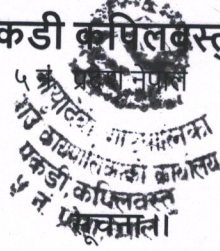 कडी कपिलवस्तु
५ नं. प्रदेश नेपाल
मायादेवी गाउँपालिका
गाउँ कार्यपालिकाको कार्यालय
पकडी, कपिलवस्तु
५ नं.